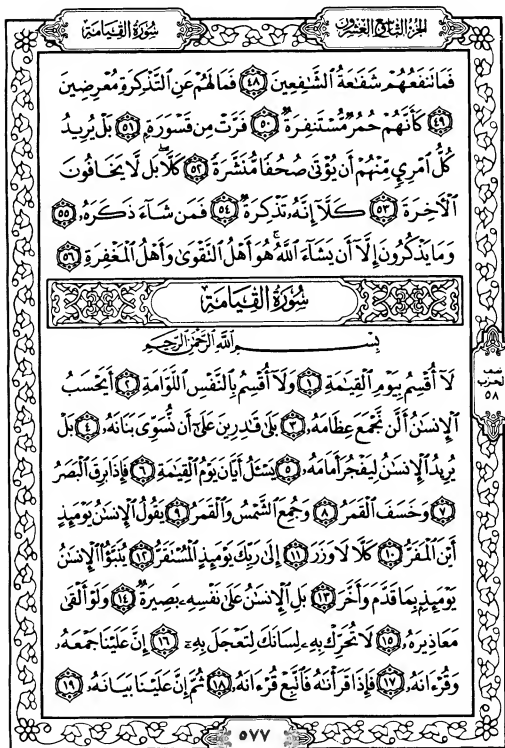 الجزء التاسع والعشرون
سورة القيامة
فَمَا تَنفَعُهُمْ شَفَٰعَةُ ٱلشَّٰفِعِينَ ٤٨ فَمَا لَهُمْ عَنِ ٱلتَّذْكِرَةِ مُعْرِضِينَ
٤٩ كَأَنَّهُمْ حُمُرٌ مُّسْتَنفِرَةٌ ٥٠ فَرَّتْ مِن قَسْوَرَةٍ ٥١ بَلْ يُرِيدُ
كُلُّ ٱمْرِئٍ مِّنْهُمْ أَن يُؤْتَىٰ صُحُفًا مُّنَشَّرَةً ٥٢ كَلَّا بَل لَّا يَخَافُونَ
ٱلْءَاخِرَةَ ٥٣ كَلَّآ إِنَّهُۥ تَذْكِرَةٌ ٥٤ فَمَن شَآءَ ذَكَرَهُۥ ٥٥
وَمَا يَذْكُرُونَ إِلَّآ أَن يَشَآءَ ٱللَّهُ هُوَ أَهْلُ ٱلتَّقْوَىٰ وَأَهْلُ ٱلْمَغْفِرَةِ ٥٦
سُورَةُ القِيَامَة
بِسْمِ ٱللَّهِ ٱلرَّحْمَٰنِ ٱلرَّحِيمِ
لَآ أُقْسِمُ بِيَوْمِ ٱلْقِيَٰمَةِ ١ وَلَآ أُقْسِمُ بِٱلنَّفْسِ ٱللَّوَّامَةِ ٢ أَيَحْسَبُ
ٱلْإِنسَٰنُ أَلَّن نَّجْمَعَ عِظَامَهُۥ ٣ بَلَىٰ قَٰدِرِينَ عَلَىٰٓ أَن نُّسَوِّىَ بَنَانَهُۥ ٤ بَلْ
يُرِيدُ ٱلْإِنسَٰنُ لِيَفْجُرَ أَمَامَهُۥ ٥ يَسْـَٔلُ أَيَّانَ يَوْمُ ٱلْقِيَٰمَةِ ٦ فَإِذَا بَرِقَ ٱلْبَصَرُ
٧ وَخَسَفَ ٱلْقَمَرُ ٨ وَجُمِعَ ٱلشَّمْسُ وَٱلْقَمَرُ ٩ يَقُولُ ٱلْإِنسَٰنُ يَوْمَئِذٍ
أَيْنَ ٱلْمَفَرُّ ١٠ كَلَّا لَا وَزَرَ ١١ إِلَىٰ رَبِّكَ يَوْمَئِذٍ ٱلْمُسْتَقَرُّ ١٢ يُنَبَّؤُا۟ ٱلْإِنسَٰنُ
يَوْمَئِذٍۭ بِمَا قَدَّمَ وَأَخَّرَ ١٣ بَلِ ٱلْإِنسَٰنُ عَلَىٰ نَفْسِهِۦ بَصِيرَةٌ ١٤ وَلَوْ أَلْقَىٰ
مَعَاذِيرَهُۥ ١٥ لَا تُحَرِّكْ بِهِۦ لِسَانَكَ لِتَعْجَلَ بِهِۦٓ ١٦ إِنَّ عَلَيْنَا جَمْعَهُۥ
وَقُرْءَانَهُۥ ١٧ فَإِذَا قَرَأْنَٰهُ فَٱتَّبِعْ قُرْءَانَهُۥ ١٨ ثُمَّ إِنَّ عَلَيْنَا بَيَانَهُۥ ١٩
نصف
الحزب
٥٨
٥٧٧